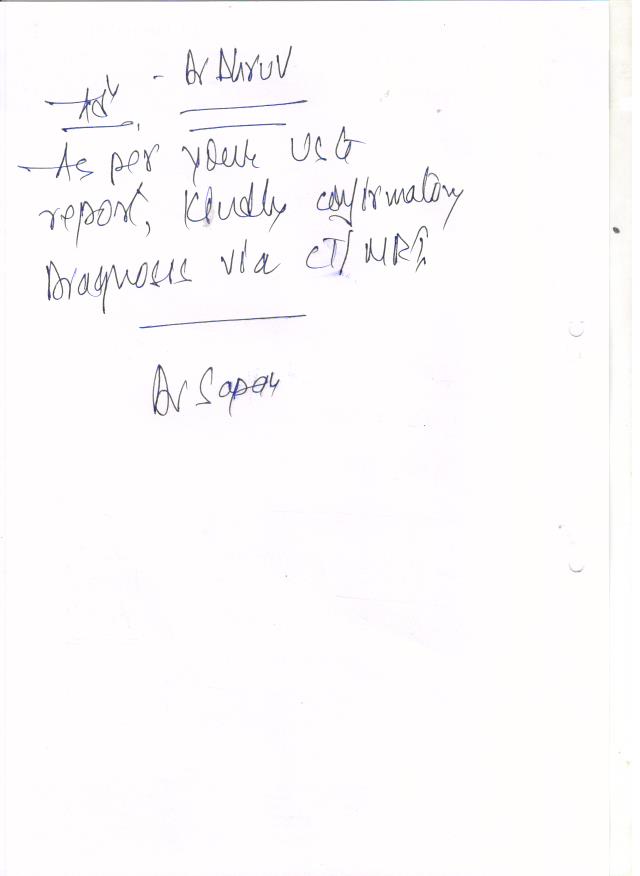 Adv - Dr Dhruv
As per your USG
report, Kindly confirmatory
Diagnosis via CT/MRI
Dr